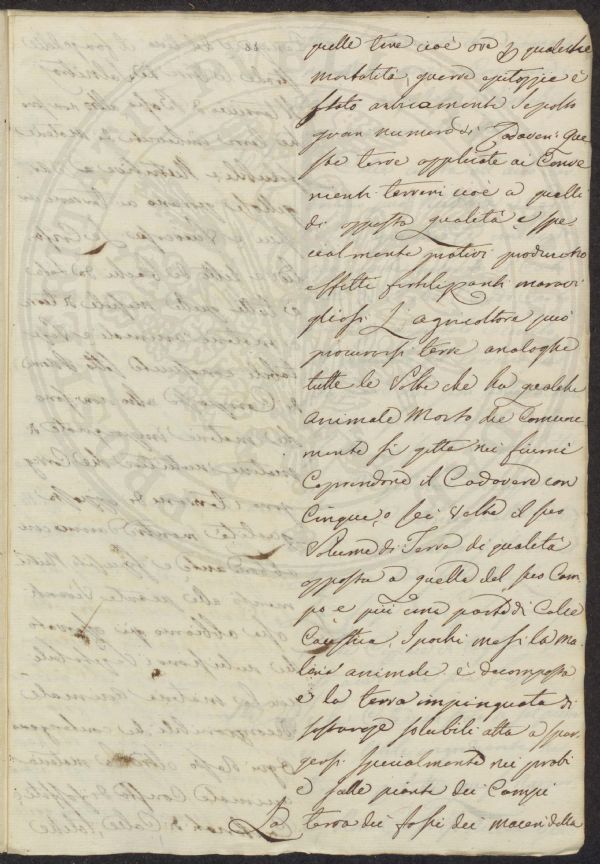 quelle terre cioè ove p qualche
mortalità, guerra epitozzie è
stato anticamente sepolto
gran numero di Cadaveri: Que
ste terre applicate ai Conve
nienti terreni cioè a quelli
di opposta qualità e spe
cialmente prativi producono
effetti fertilizzanti maravi
gliosi L'agricoltore può
procurarsi terre analoghe
tutte le Volte che ha qualche
animale Morto che Comune
mente si gitta nei fiumi
Coprendone il Cadavere con
Cinque, o sei Volte il suo
Volume di Terra di qualità
opposta a quella del suo Cam
po e più una parte di Calce
Caustica. I pochi mesi la Ma
teria animale è decomposta
e la terra impinguata di
sostanze solubili atta a spar
gersi specialmente nei prati
e sulle piante dei Campi
La terra dei fossi dei maceri della